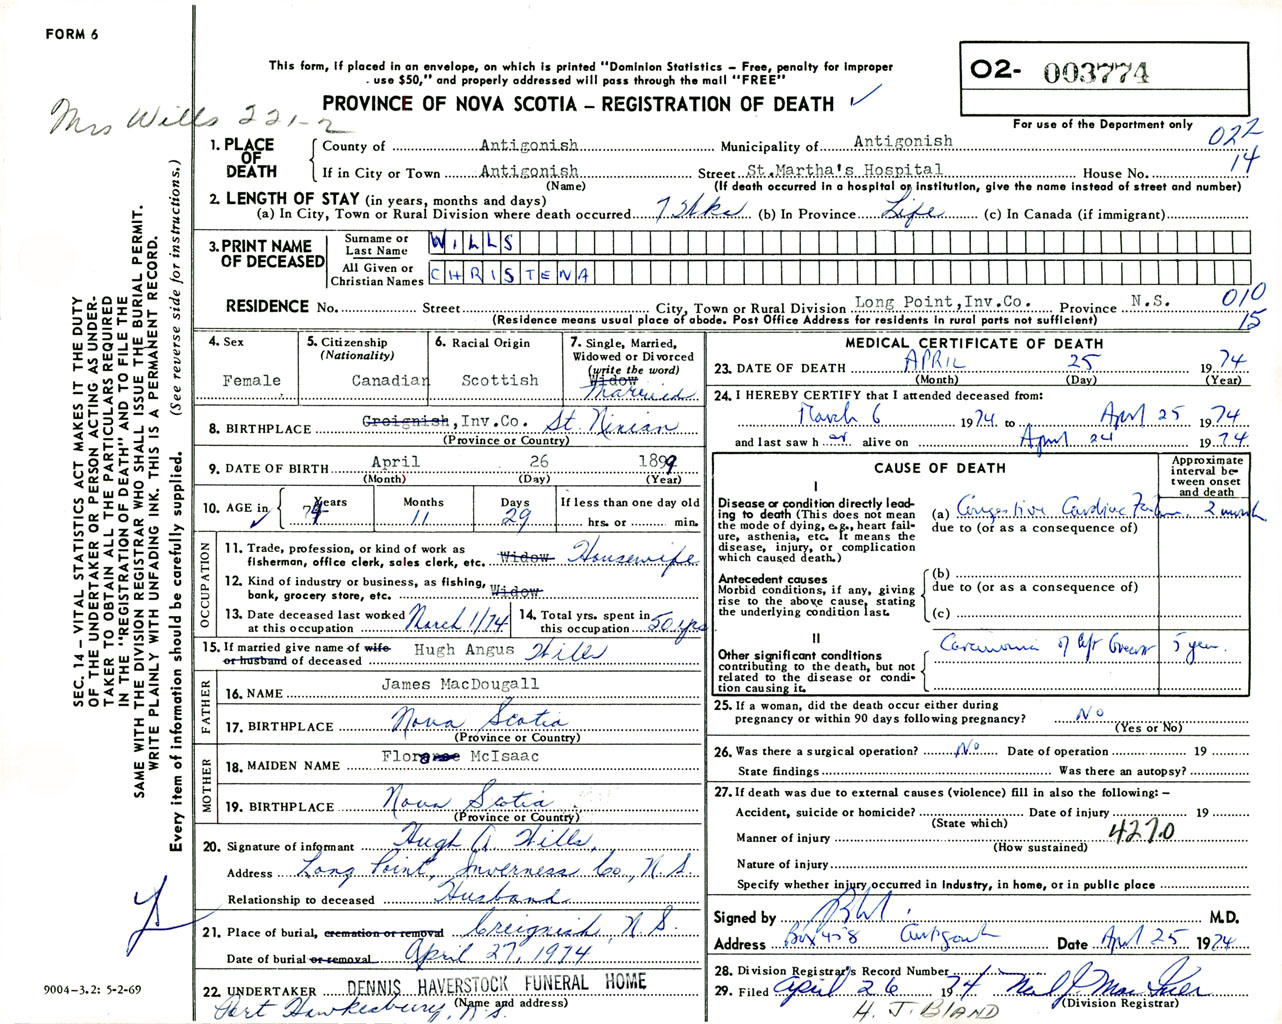 FORM 6
This form, if placed in an envelope, on which is printed "Dominion Statistics – Free, penalty for improper
use $50," and properly addressed will pass through the mail "FREE"
PROVINCE OF NOVA SCOTIA – REGISTRATION OF DEATH ✓
O2- 003774
For use of the Department only
Mrs Wills 221-2
022
14
1. PLACE OF DEATH
County of Antigonish Municipality of Antigonish
If in City or Town Antigonish Street St.Martha's Hospital House No.
(Name) (If death occurred in a hospital or institution, give the name instead of street and number)
2. LENGTH OF STAY (in years, months and days)
(a) In City, Town or Rural Division where death occurred 7 Wks (b) In Province Life (c) In Canada (if immigrant)
3. PRINT NAME OF DECEASED
Surname or Last Name WILLS
All Given or Christian Names CHRISTENA
RESIDENCE No. Street City, Town or Rural Division Long Point,Inv.Co. Province N.S. 010
(Residence means usual place of abode. Post Office Address for residents in rural parts not sufficient) 15
4. Sex
Female
5. Citizenship
(Nationality)
Canadian
6. Racial Origin
Scottish
7. Single, Married,
Widowed or Divorced
(write the word)
Widow
Married
8. BIRTHPLACE Creignish,Inv.Co. St. Ninian
(Province or Country)
9. DATE OF BIRTH April 26 1899
(Month) (Day) (Year)
10. AGE in ✓ Years 74 Months 11 Days 29 If less than one day old
hrs. or min.
OCCUPATION
11. Trade, profession, or kind of work as
fisherman, office clerk, sales clerk, etc. Widow Housewife
12. Kind of industry or business, as fishing,
bank, grocery store, etc. Widow
13. Date deceased last worked
at this occupation March 1/74
14. Total yrs. spent in
this occupation 50 yrs
15. If married give name of wife
or husband of deceased Hugh Angus Wills
FATHER
16. NAME James MacDougall
17. BIRTHPLACE Nova Scotia
(Province or Country)
MOTHER
18. MAIDEN NAME McIsaac
19. BIRTHPLACE Nova Scotia
(Province or Country)
20. Signature of informant Hugh A Wills,
Address Long Point, Inverness Co., N.S.
Relationship to deceased Husband
21. Place of burial, cremation or removal Creignish, N.S.
Date of burial or removal April 27, 1974
22. UNDERTAKER DENNIS HAVERSTOCK FUNERAL HOME
(Name and address)
Port Hawkesbury, N.S.
MEDICAL CERTIFICATE OF DEATH
23. DATE OF DEATH APRIL 25 1974
(Month) (Day) (Year)
24. I HEREBY CERTIFY that I attended deceased from:
March 6 1974 to April 25 1974
and last saw her alive on April 24 1974
CAUSE OF DEATH
Approximate
interval be-
tween onset
and death
I
Disease or condition directly lead-
ing to death (This does not
mean the mode of dying, e.g., heart fail-
ure, asthenia, etc. It means the
disease, injury, or complication
which caused death.)
(a) Congestive Cardiac Failure. 2 month
due to (or as a consequence of)
Antecedent causes
Morbid conditions, if any, giving
rise to the above cause, stating
the underlying condition last.
(b)
due to (or as a consequence of)
(c)
II
Other significant conditions
contributing to the death, but not
related to the disease or condi-
tion causing it.
Carcinoma of left breast 5 year.
25. If a woman, did the death occur either during
pregnancy or within 90 days following pregnancy? No
(Yes or No)
26. Was there a surgical operation? No Date of operation 19
State findings Was there an autopsy?
27. If death was due to external causes (violence) fill in also the following: –
Accident, suicide or homicide? Date of injury 19
(State which)
Manner of injury 4270
(How sustained)
Nature of injury
Specify whether injury occurred in Industry, in home, or in public place
Signed by M.D.
Address Box 458 Antigonish Date April 25 1974
28. Division Registrar's Record Number
29. Filed April 26 1974
(Division Registrar)
H. J. BLAND
SEC. 14 – VITAL STATISTICS ACT MAKES IT THE DUTY
OF THE UNDERTAKER OR PERSON ACTING AS UNDER-
TAKER TO OBTAIN ALL THE PARTICULARS REQUIRED
IN THE "REGISTRATION OF DEATH" AND TO FILE THE
SAME WITH THE DIVISION REGISTRAR WHO SHALL ISSUE THE BURIAL PERMIT.
WRITE PLAINLY WITH UNFADING INK. THIS IS A PERMANENT RECORD.
Every item of information should be carefully supplied. (See reverse side for instructions.)
9004-3.2: 5-2-69